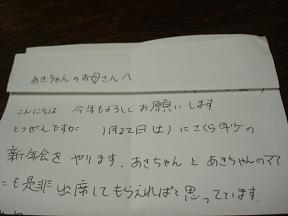 あきちゃんのお母さんへ
こんにちは 今年もよろしくお願いします
とつぜんですが 1月22日(土)にさくら
新年会をやります。あきちゃんとあきちゃんのママ
にも是非出席してもらえればと思っています。